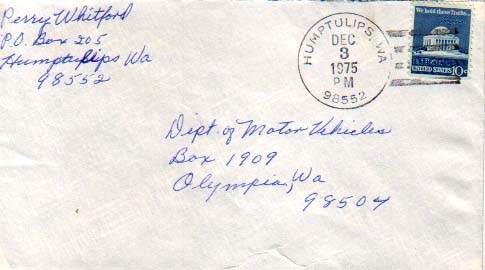 Perry Whitford
P.O. Box 205
Humptulips Wa
98552
HUMPTULIPS, WA
DEC
3
1975
PM
98552
We hold these Truths...
UNITED STATES 10c
Dept. of Motor Vehicles
Box 1909
Olympia, Wa
98504